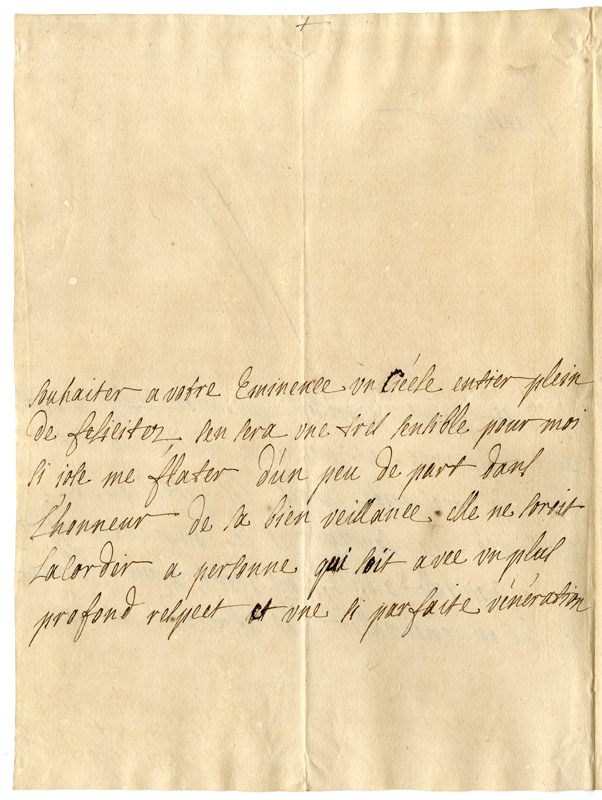 souhaiter a votre Eminence vn siécle entier plein
de felicitez sen sera vne tres sensible pour moi
si iose me flater d'un peu de part dans
l'honneur de sa bien veillance. elle ne soroit
lacorder a personne qui soit avec vn plus
profond respect et vne si parfaite vénération